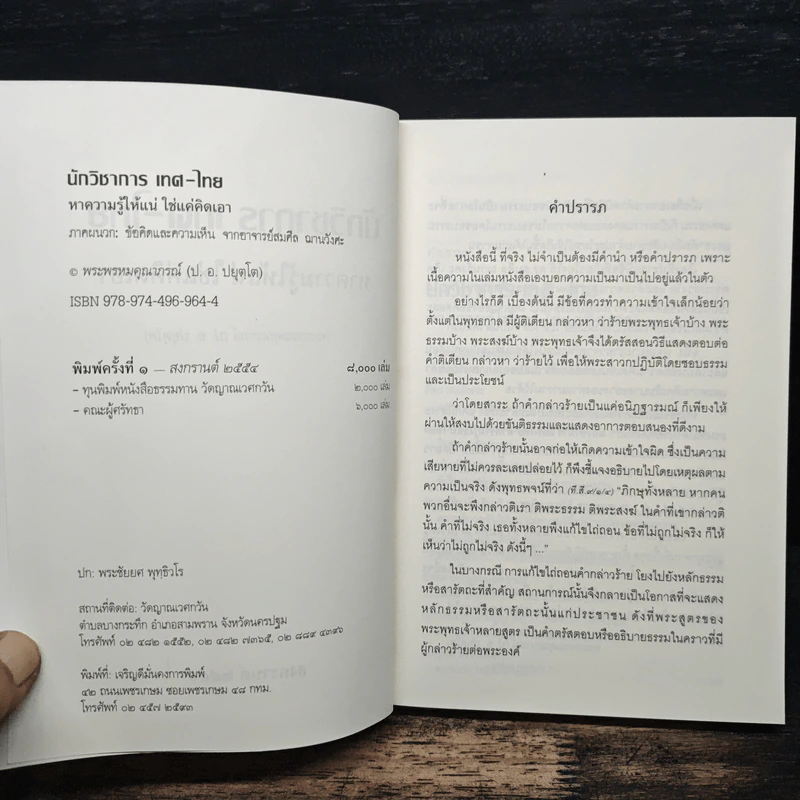 นักวิชาการ เทศ-ไทย
หาความรู้ให้แน่ ใช่แค่คิดเอา
ภาคผนวก: ข้อคิดและความเห็น จากอาจารย์สมศีล ฌานวังศะ
© พระพรหมคุณาภรณ์ (ป. อ. ปยุตฺโต)
ISBN 978-974-496-964-4
พิมพ์ครั้งที่ ๑ — สงกรานต์ ๒๕๕๔ ๘,๐๐๐ เล่ม
- ทุนพิมพ์หนังสือธรรมทาน วัดญาณเวศกวัน ๒,๐๐๐ เล่ม
- คณะผู้ศรัทธา ๖,๐๐๐ เล่ม
ปก: พระชัยยศ พุทฺธิวโร
สถานที่ติดต่อ: วัดญาณเวศกวัน
ตำบลบางกระทึก อำเภอสามพราน จังหวัดนครปฐม
โทรศัพท์ ๐๒ ๔๘๒ ๑๕๕๒, ๐๒ ๔๘๒ ๗๓๖๕, ๐๒ ๘๘๙ ๔๓๙๖
พิมพ์ที่: เจริญดีมั่นคงการพิมพ์
๔๒ ถนนเพชรเกษม ซอยเพชรเกษม ๔๘ กทม.
โทรศัพท์ ๐๒ ๔๕๗ ๒๕๙๓
คำปรารภ
หนังสือนี้ ที่จริง ไม่จำเป็นต้องมีคำนำ หรือคำปรารภ เพราะ
เนื้อความในเล่มหนังสือเองบอกความเป็นมาเป็นไปอยู่แล้วในตัว
อย่างไรก็ดี เบื้องต้นนี้ มีข้อที่ควรทำความเข้าใจเล็กน้อยว่า
ตั้งแต่ในพุทธกาล มีผู้ติเตียน กล่าวหา ว่าร้ายพระพุทธเจ้าบ้าง พระ
ธรรมบ้าง พระสงฆ์บ้าง พระพุทธเจ้าจึงได้ตรัสสอนวิธีแสดงตอบต่อ
คำติเตียน กล่าวหา ว่าร้ายไว้ เพื่อให้พระสาวกปฏิบัติโดยชอบธรรม
และเป็นประโยชน์
ว่าโดยสาระ ถ้าคำกล่าวร้ายเป็นแค่อนิฏฐารมณ์ ก็เพียงให้
ผ่านให้สงบไปด้วยขันติธรรมและแสดงอาการตอบสนองที่ดีงาม
ถ้าคำกล่าวร้ายนั้นอาจก่อให้เกิดความเข้าใจผิด ซึ่งเป็นความ
เสียหายที่ไม่ควรละเลยปล่อยไว้ ก็พึงชี้แจงอธิบายไปโดยเหตุผลตาม
ความเป็นจริง ดังพุทธพจน์ที่ว่า (ที.สี.๙/๑/๔) "ภิกษุทั้งหลาย หากคน
พวกอื่นจะพึงกล่าวติเรา ติพระธรรม ติพระสงฆ์ ในคำที่เขากล่าวติ
นั้น คำที่ไม่จริง เธอทั้งหลายพึงแก้ไขไถ่ถอน ข้อที่ไม่ถูกไม่จริง ก็ให้
เห็นว่าไม่ถูกไม่จริง ดังนี้ๆ ..."
ในบางกรณี การแก้ไขไถ่ถอนคำกล่าวร้าย โยงไปยังหลักธรรม
หรือสารัตถะที่สำคัญ สถานการณ์นั้นจึงกลายเป็นโอกาสที่จะแสดง
หลักธรรมหรือสารัตถะนั้นแก่ประชาชน ดังที่พระสูตรของ
พระพุทธเจ้าหลายสูตร เป็นคำตรัสตอบหรืออธิบายธรรมในคราวที่มี
ผู้กล่าวร้ายต่อพระองค์